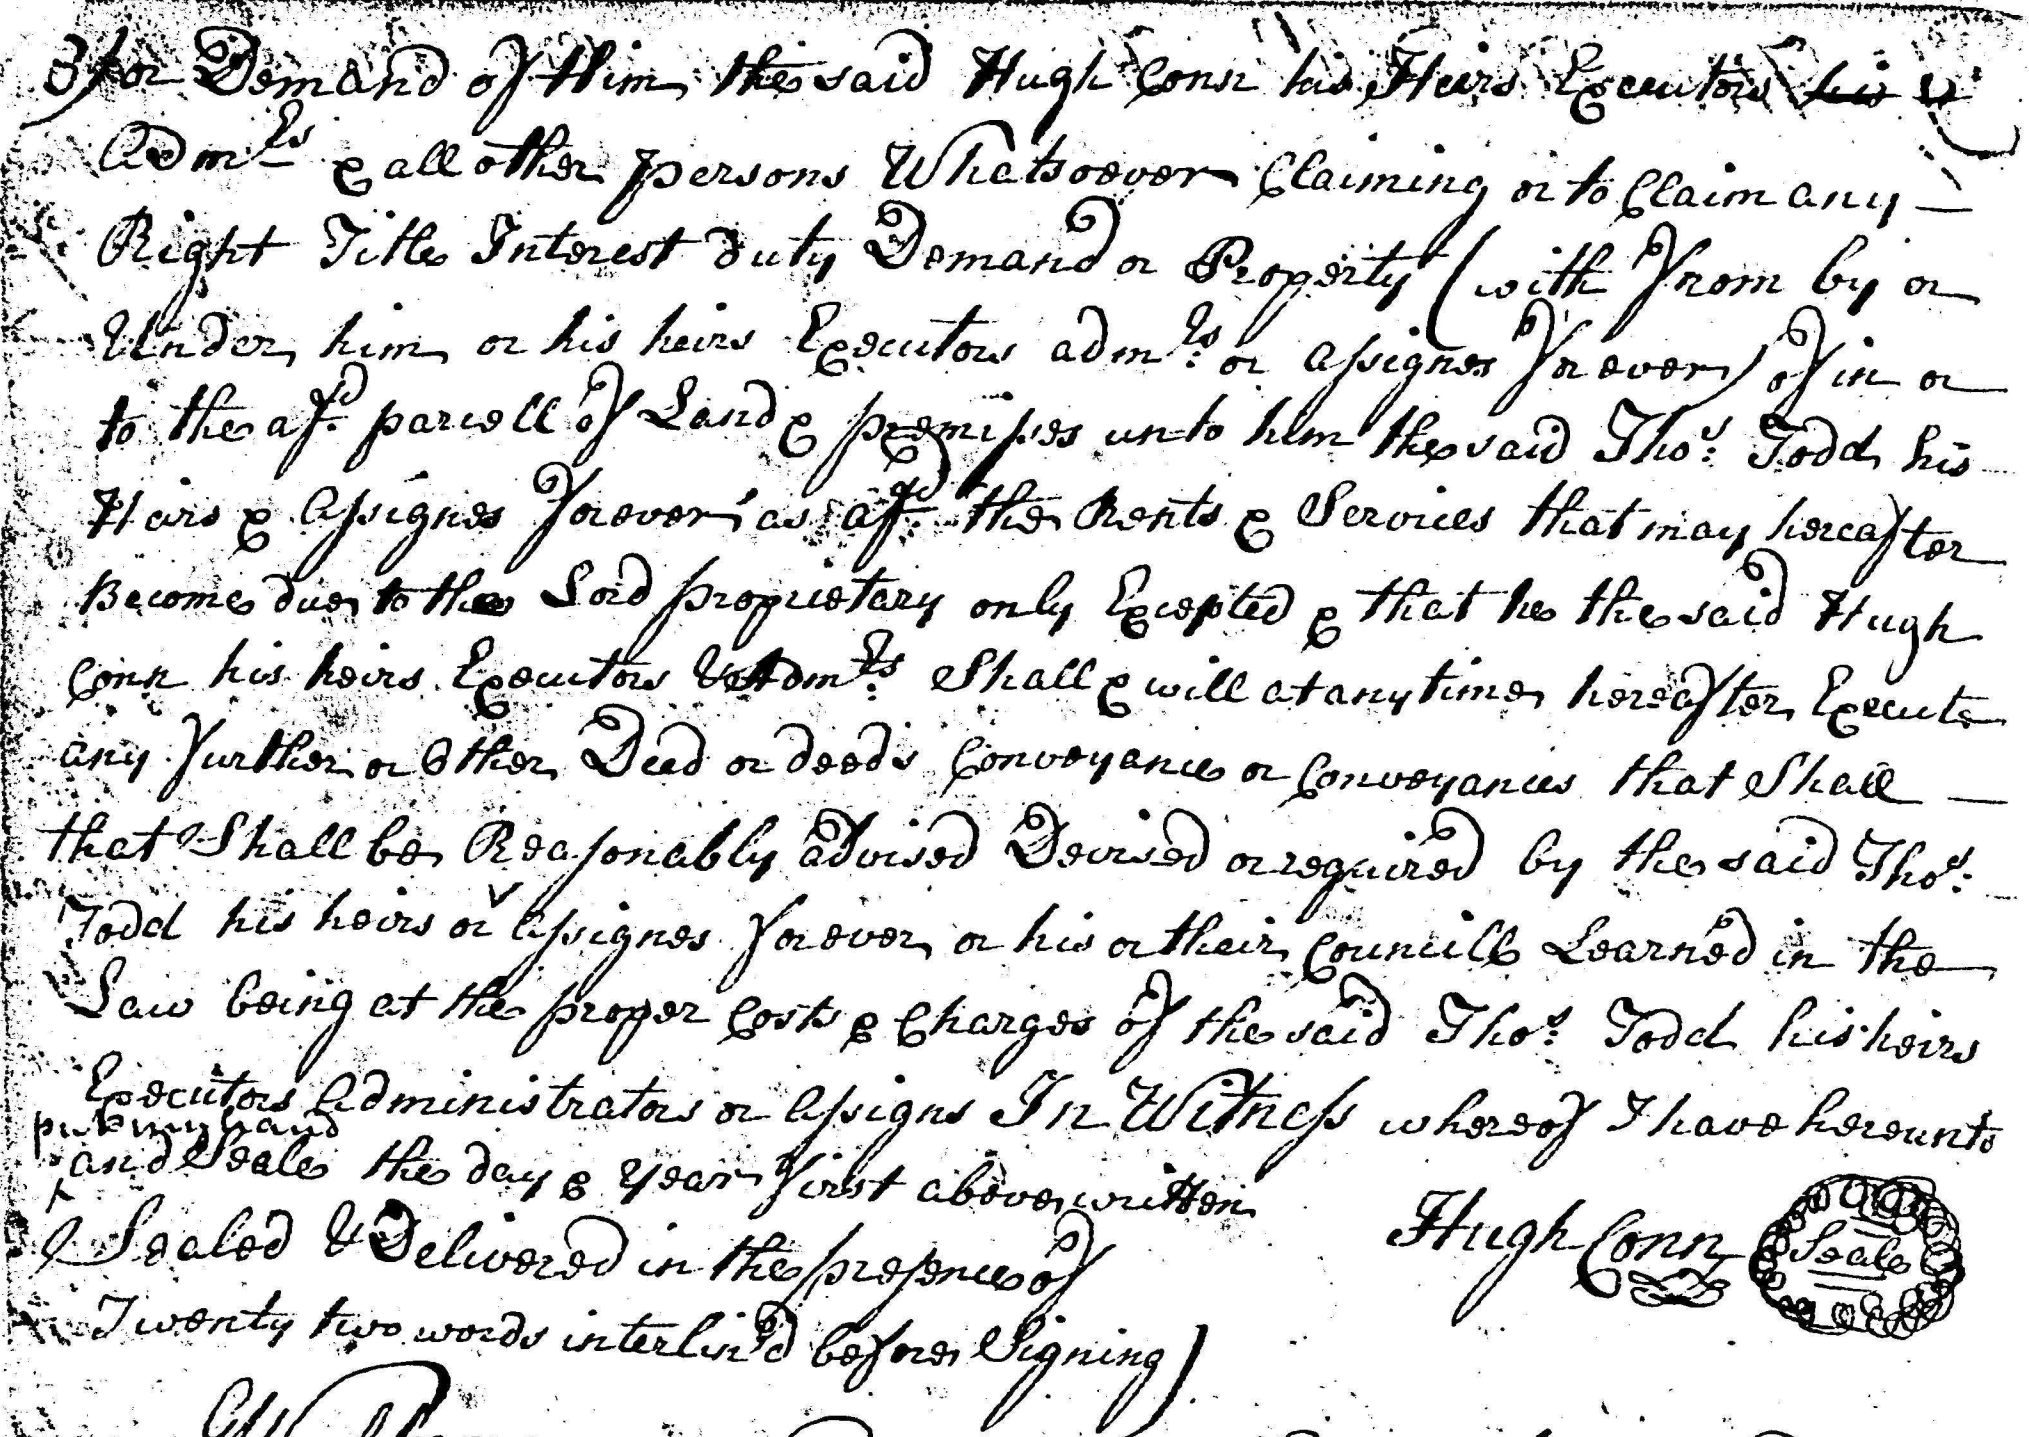 or Demand of Him the said Hugh Conn his Heirs Executors his &
Adm:rs & all other persons Whatsoever Claiming or to Claim any —
Right Title Interest duty Demand or Property (with from by or
Under him or his heirs Executors adm:rs or assignes forever) of in or
to the afd. parcell of Land & premisses unto him the said Thos: Todd his
Heirs & Assignes forever as afd. the Rents & Services that may hereafter
Become due to the Lord proprietary only Excepted & that he the said Hugh
Conn his heirs Executors & Adm:rs Shall & will at any time hereafter Execute
any further or Other Deed or deeds Conveyance or Conveyances that Shall —
that Shall be Reasonably advised Devised or required by the said Thos:
Todd his heirs or assignes forever or his or their Councill Learned in the
Law being at the proper Costs & Charges of the said Thos: Todd his heirs
Executors Administrators or Assigns In Witness whereof I have hereunto
put my hand
and Seale the day & Year first above written
Sealed & Delivered in the presence of Hugh Conn Seale
Twenty two words interlin'd before Signing)